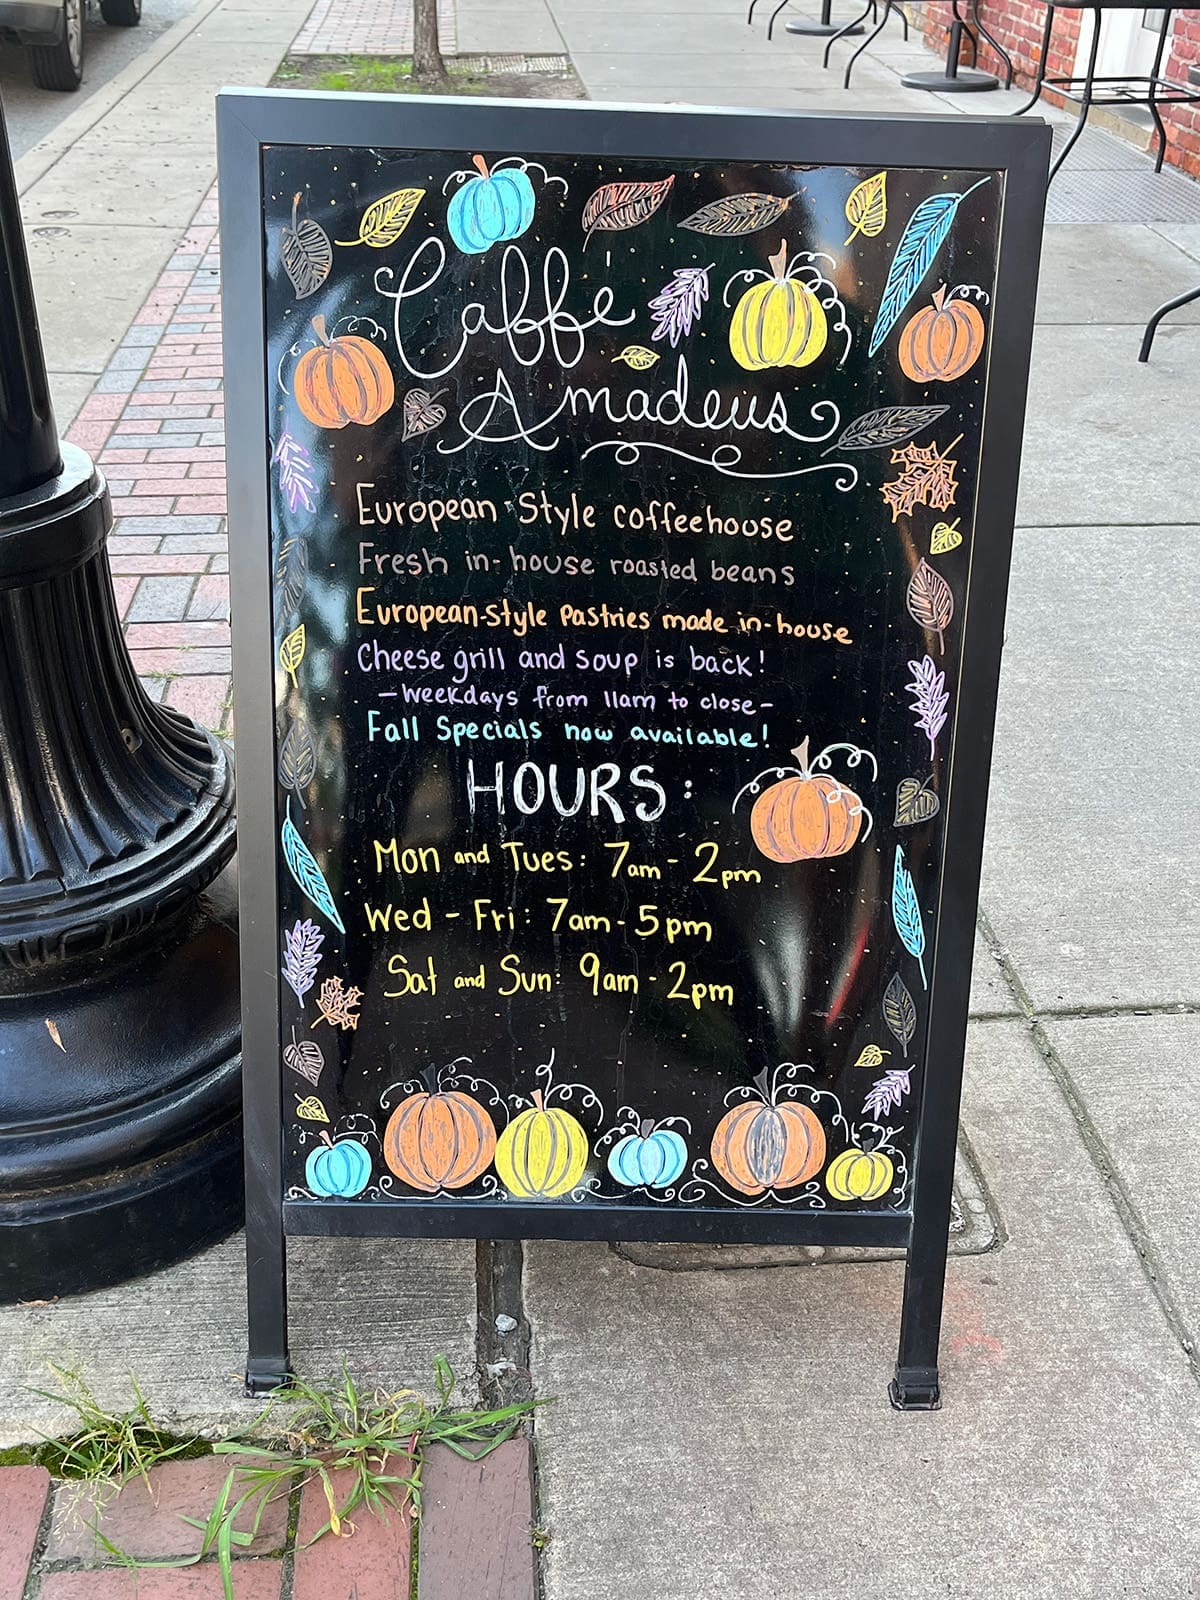 Caffe
Amadeus
European-Style coffeehouse
Fresh in-house roasted beans
European-style Pastries made in-house
Cheese grill and soup is back!
-Weekdays from 11am to close-
Fall Specials now available!
HOURS:
Mon and Tues: 7am-2pm
Wed - Fri: 7am-5pm
Sat and Sun: 9am-2pm